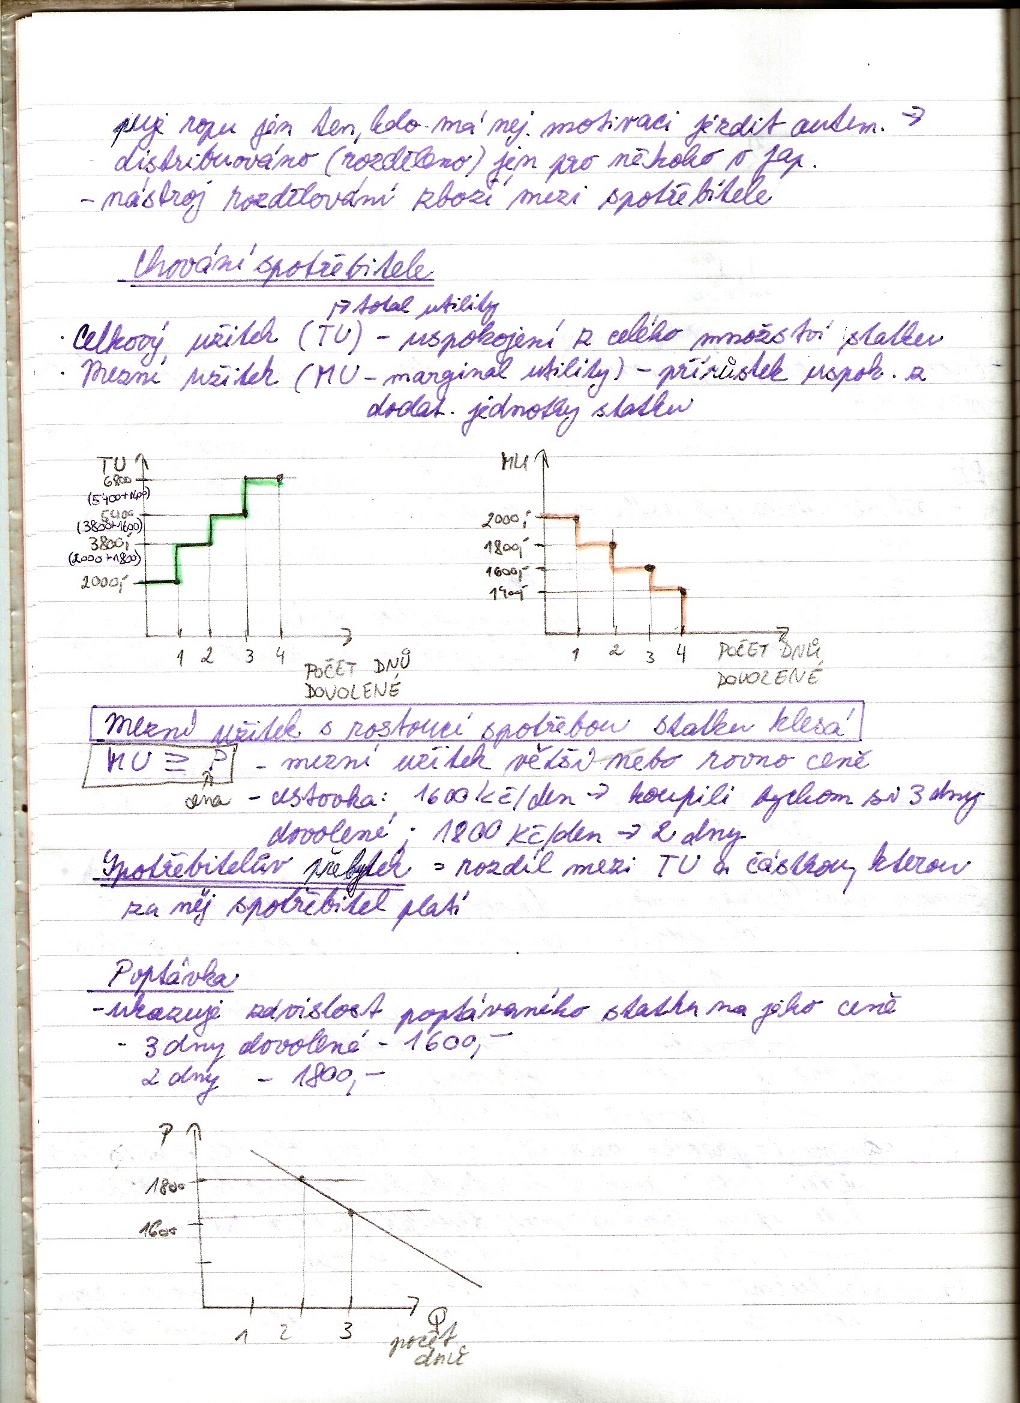 puje ropu jen ten, kdo má nej. motivaci jezdit autem. →
distribuováno (rozděleno) jen pro někoho v jap.
- nástroj rozdělování zboží mezi spotřebitele
Chování spotřebitele
↦ total utility
· Celkový užitek (TU) - uspokojení z celého množství statku
· Mezní užitek (MU - marginal utility) - přírůstek uspok. z
dodat. jednotky statku
TU
6800
(5400+1400)
5400
(3800+1600)
3800,-
(2000+1800)
2000,-
1 2 3 4
POČET DNŮ
DOVOLENÉ
MU
2000,-
1800,-
1600,-
1400,-
1 2 3 4
POČET DNŮ
DOVOLENÉ
Mezní užitek s rostoucí spotřebou statku klesá
MU ≥ P - mezní užitek větší nebo rovno ceně
cena
- cestovka: 1600 Kč/den → koupili bychom si 3 dny
dovolené; 1800 Kč/den → 2 dny
Spotřebitelův přebytek = rozdíl mezi TU a částkou, kterou
za něj spotřebitel platí
Poptávka
- ukazuje závislost poptávaného statku na jeho ceně
- 3 dny dovolené - 1600,-
2 dny - 1800,-
P
1800
1600
1 2 3
Q
počet
dnů